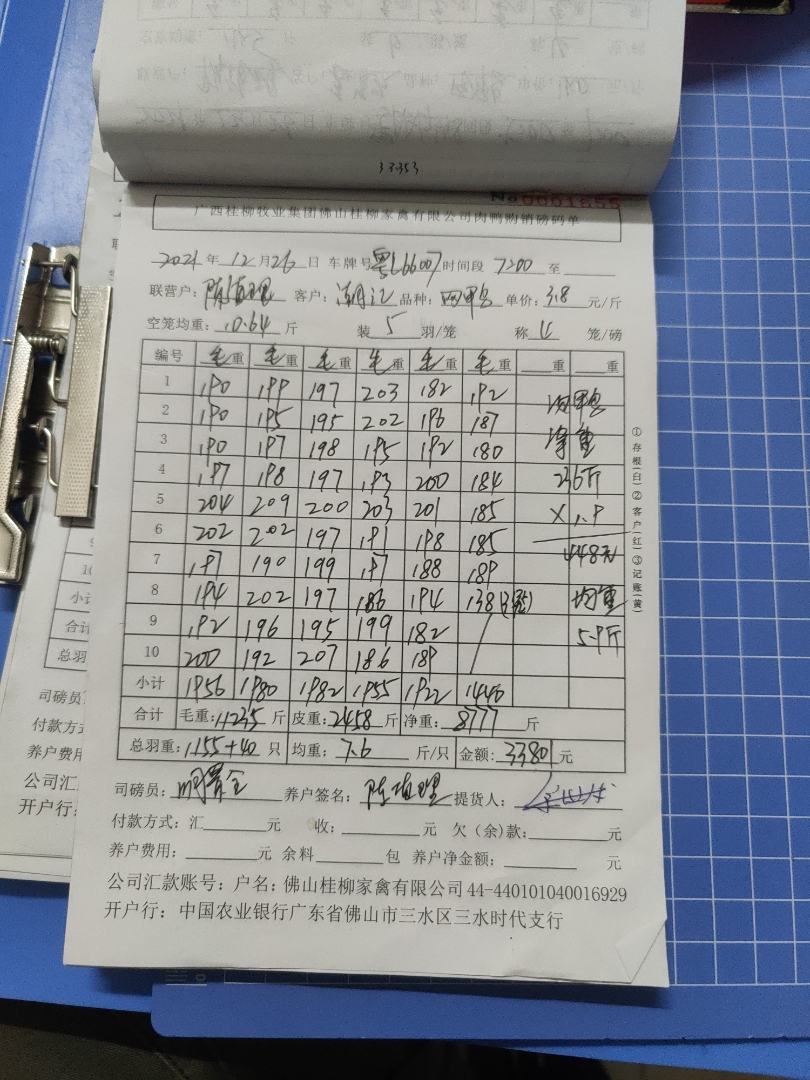 33353
No 0001655
广西桂柳牧业集团佛山桂柳家禽有限公司肉鸭购销磅码单
2021年12月26日 车牌号 粤L66007 时间段 7:00 至
联营户: 陈 客户: 潮江 品种: 单价: 3.8 元/斤
空笼均重: 10.64 斤 装 5 羽/笼 称 4 笼/磅
编号 毛重 毛重 毛重 毛重 毛重 毛重 重 重
1 190 199 197 203 182 192
2 190 195 195 202 196 187
3 190 197 198 195 192 180 净重
4 197 198 197 193 200 184 236斤
5 204 209 200 203 201 185 X 1.9
6 202 202 197 191 198 185 448元
7 197 190 199 197 188 189
8 194 202 197 186 194 138(3笼) 均重
9 192 196 195 199 182 5.9斤
10 200 192 207 186 189
小计 1956 1980 1982 1955 1922 1440
合计 毛重: 11235 斤 皮重: 2458 斤 净重: 8777 斤
总羽重: 1155+40 只 均重: 7.6 斤/只 金额: 3380 元
①存根(白)②客户(红)③记账(黄)
司磅员: 养户签名: 陈 提货人:
付款方式: 汇 元 收: 元 欠(余)款: 元
养户费用: 元 余料 包 养户净金额: 元
公司汇款账号: 户名: 佛山桂柳家禽有限公司 44-440101040016929
开户行: 中国农业银行广东省佛山市三水区三水时代支行
小计
合计
总羽
司磅员
付款方式
养户费用
公司汇
开户行: